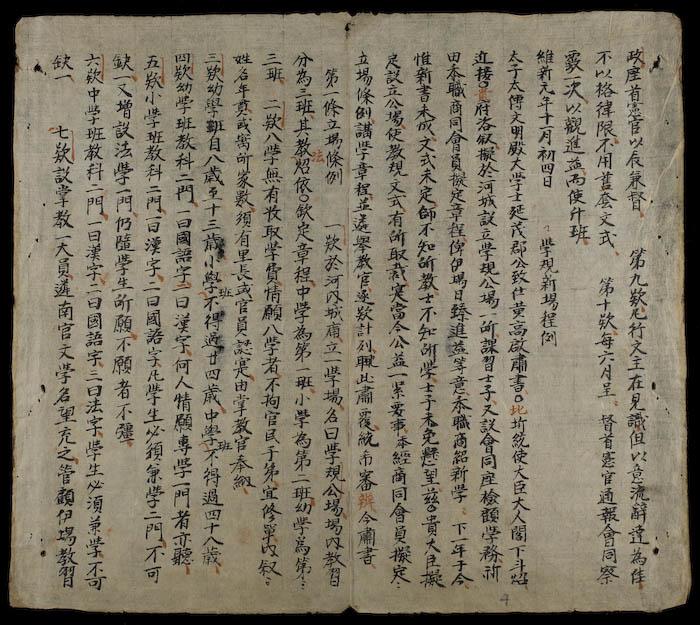 政座首憲官以辰兼督　第九欵凡行文主在見識但以意流辭達為佳
不以格律限不用舊套文式　第十欵每六月呈　督首憲官通報會同察
覈一次以觀進益而使升班
維新元年十一月初四日　學規新場程例
太子太傅文明殿大學士延茂郡公致仕黃高啟肅書〇北圻統使大臣大人閣下斗炤
近接貴府洛叙擬於河城設立學規公場一所課習士子又議會同座檢顧學務祈
由本職商同會員擬定章程俾伊場日臻進益等意本職商紹新學　下一年于今
惟新書未成文式未定師不知所教士不知所學士子未免懸望茲〇貴大臣擬
定設立公場使教規文式有所取裁寔當今公益一緊要事本經商同會員擬定
立場條例講學章程並遴舉教官逐欵計列耑此肅覆統希審辦今肅書
第一條立場條例　一欵於河內城廂立一學場名曰學規公場場內教習
分為三班其教法炤依〇欽定章程中學為第一班小學為第二班幼學為第
三班　二欵入學無有收取學費情願入學者不拘官民子弟宜修單內叙
姓名年庚或寓所家數須有里長或官員認寔由掌教官奉納
三欵幼學班自八歲至十三歲小學班不得過廿四歲中學班不得過四十八歲
四欵幼學班教科二門一曰國語字二曰漢字何人情願專學一門者亦聽
五欵小學班教科二門一曰漢字二曰國語字凡學生必須兼學二門不可
缺一又增設法學一門仍隨學生所願不願者不彊
六欵中學班教科二門一曰漢字二曰國語字三曰法字學生必須兼學不可
缺一　七欵設掌教一大員遴南官文學名望充之管顧伊場教習